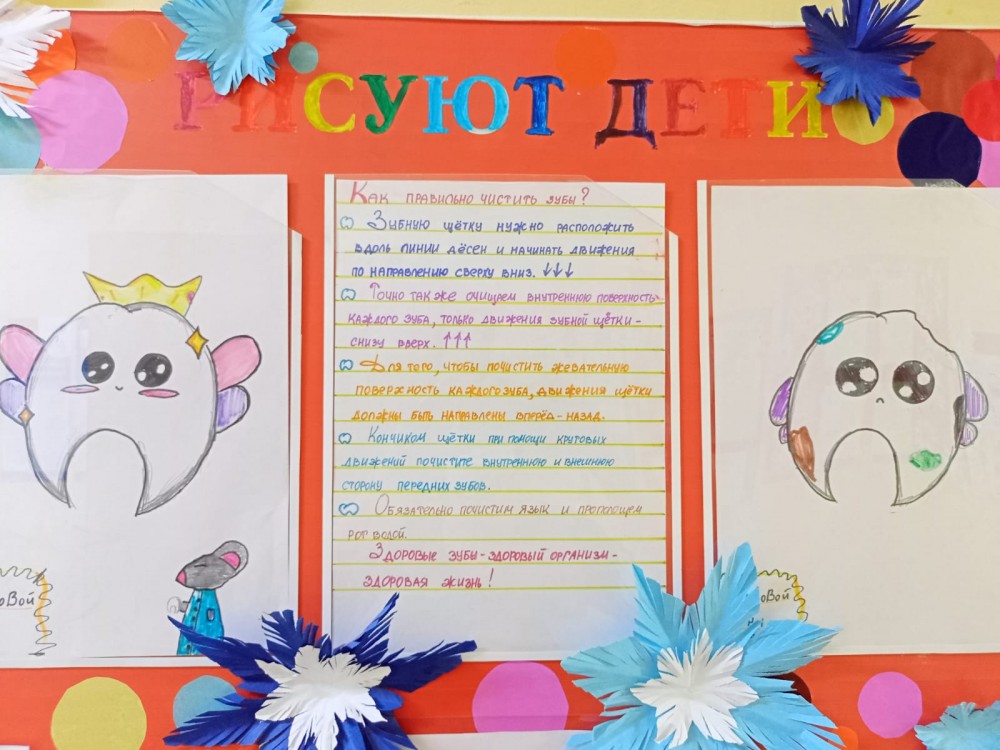 РИСУЮТ ДЕТИ
Как правильно чистить зубы?
Зубную щётку нужно расположить
вдоль линии дёсен и начинать движения
по направлению сверху вниз. ↓↓↓
Точно так же очищаем внутреннюю поверхность
каждого зуба, только движения зубной щётки -
снизу вверх. ↑↑↑
Для того, чтобы почистить жевательную
поверхность каждого зуба, движения щётки
должны быть направлены вперёд - назад.
Кончиком щётки при помощи круговых
движений почистите внутреннюю и внешнюю
сторону передних зубов.
Обязательно почистим язык и прополощем
рот водой.
Здоровые зубы - здоровый организм -
здоровая жизнь!